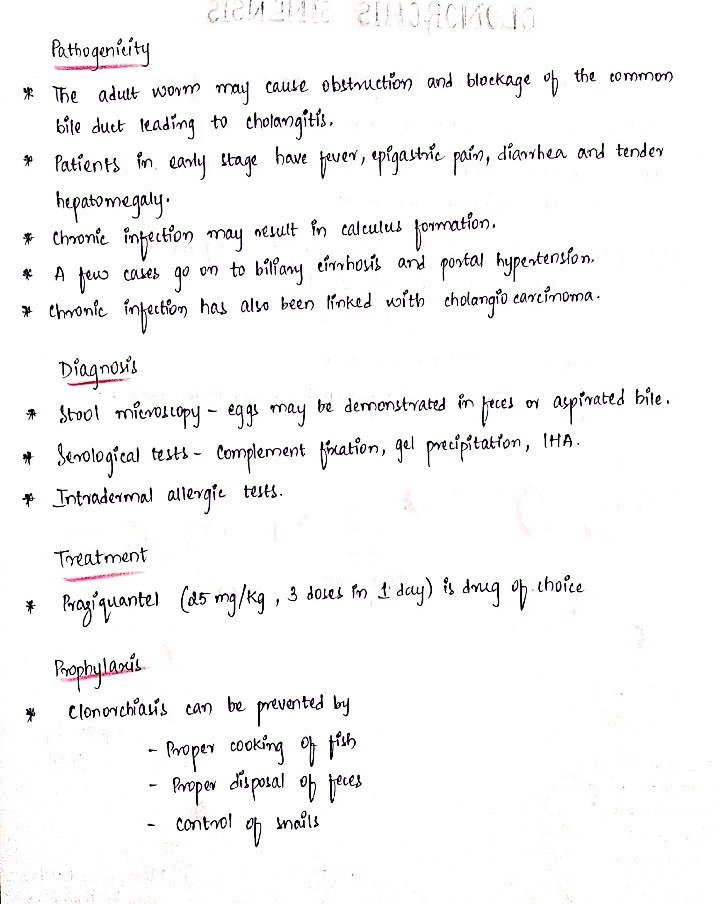 CLONORCHIS SINENSIS
Pathogenicity
* The adult worm may cause obstruction and blockage of the common
bile duct leading to cholangitis.
* Patients in early stage have fever, epigastric pain, diarrhea and tender
hepatomegaly.
* Chronic infection may result in calculus formation.
* A few cases go on to biliary cirrhosis and portal hypertension.
* Chronic infection has also been linked with cholangio carcinoma.
Diagnosis
* Stool microscopy - eggs may be demonstrated in feces or aspirated bile.
* Serological tests - Complement fixation, gel precipitation, IHA.
* Intradermal allergic tests.
Treatment
* Praziquantel (25 mg/kg, 3 doses in 1 day) is drug of choice
Prophylaxis
* Clonorchiasis can be prevented by
- Proper cooking of fish
- Proper disposal of feces
- Control of snails